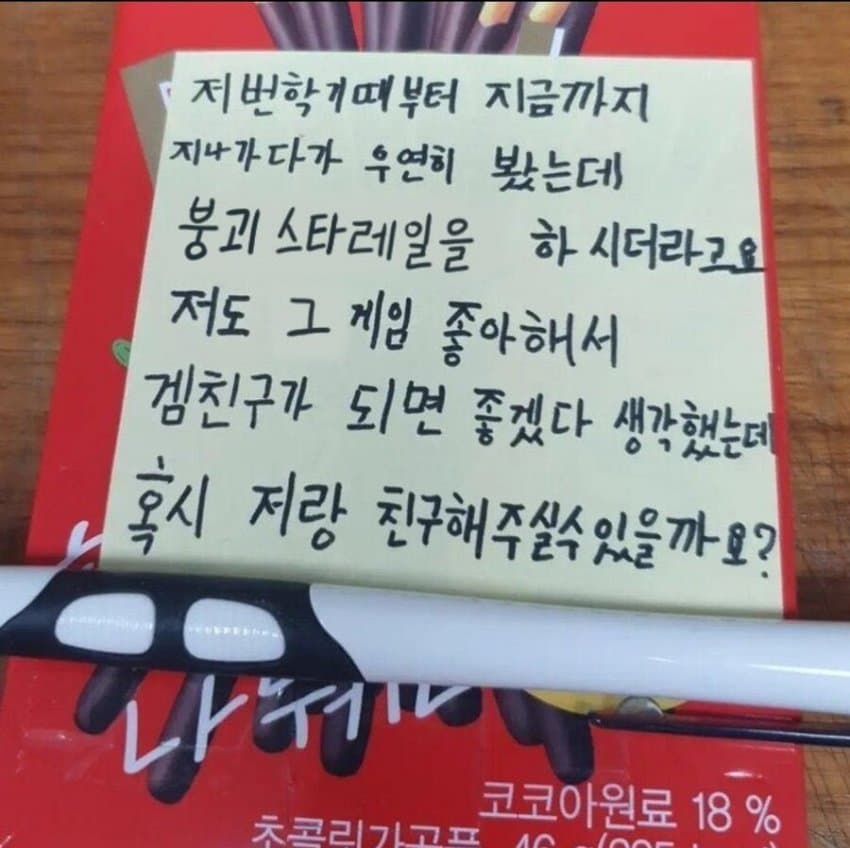 저번학기때부터 지금까지
지나가다가 우연히 봤는데
붕괴 스타레일을 하시더라고요
저도 그 게임 좋아해서
겜친구가 되면 좋겠다 생각했는데
혹시 저랑 친구해주실수있을까요?
코코아원료 18 %
초콜릿가공품 46 g